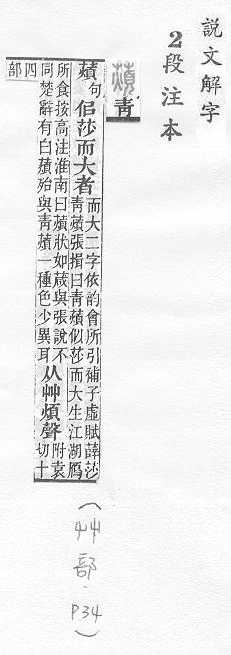 說文解字
2段注本
薠
青
薠句佀莎而大者而大二字依韵會所引補子虛賦薛莎
青薠張揖曰青薠似莎而大生江湖鴈
所食按高注淮南曰薠狀如葴與張說不
同楚辭有白薠殆與青薠一種色少異耳从艸煩聲附袁
切十
四部
(艸部.P34)